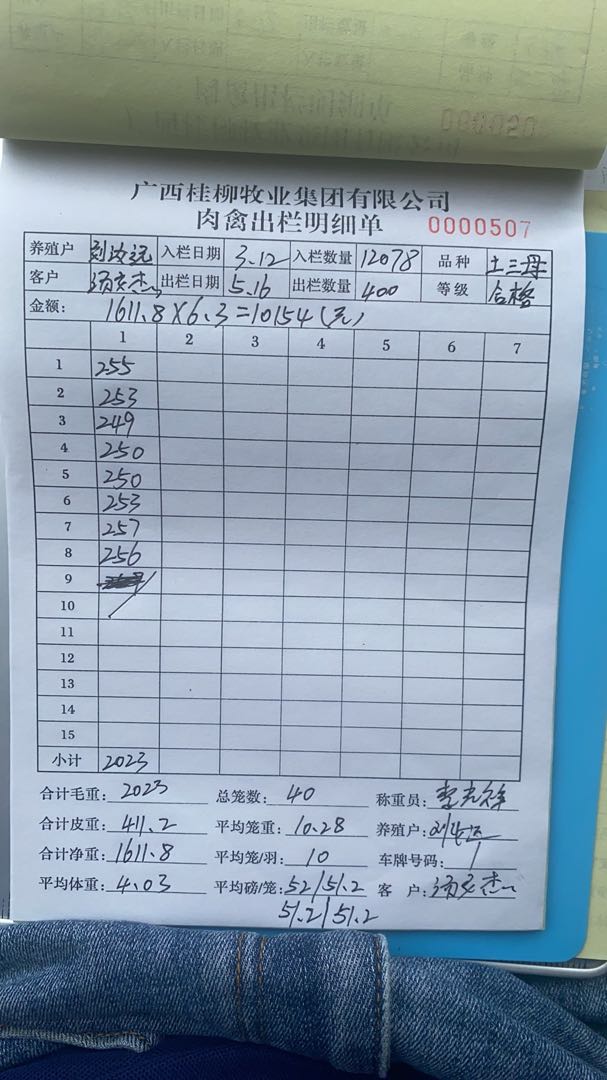 000050
广西桂柳牧业集团有限公司
肉禽出栏明细单 0000507
养殖户 入栏日期 3.12 入栏数量 12078 品种 土三母
客户 出栏日期 5.16 出栏数量 400 等级 合格
金额: 1611.8×6.3=10154(元)
1 2 3 4 5 6 7
1 255
2 253
3 249
4 250
5 250
6 253
7 257
8 256
9
10
11
12
13
14
15
小计 2023
合计毛重: 2023 总笼数: 40 称重员:
合计皮重: 411.2 平均笼重: 10.28 养殖户:
合计净重: 1611.8 平均笼/羽: 10 车牌号码: /
平均体重: 4.03 平均磅/笼: 52/51.2 客户:
51.2/51.2